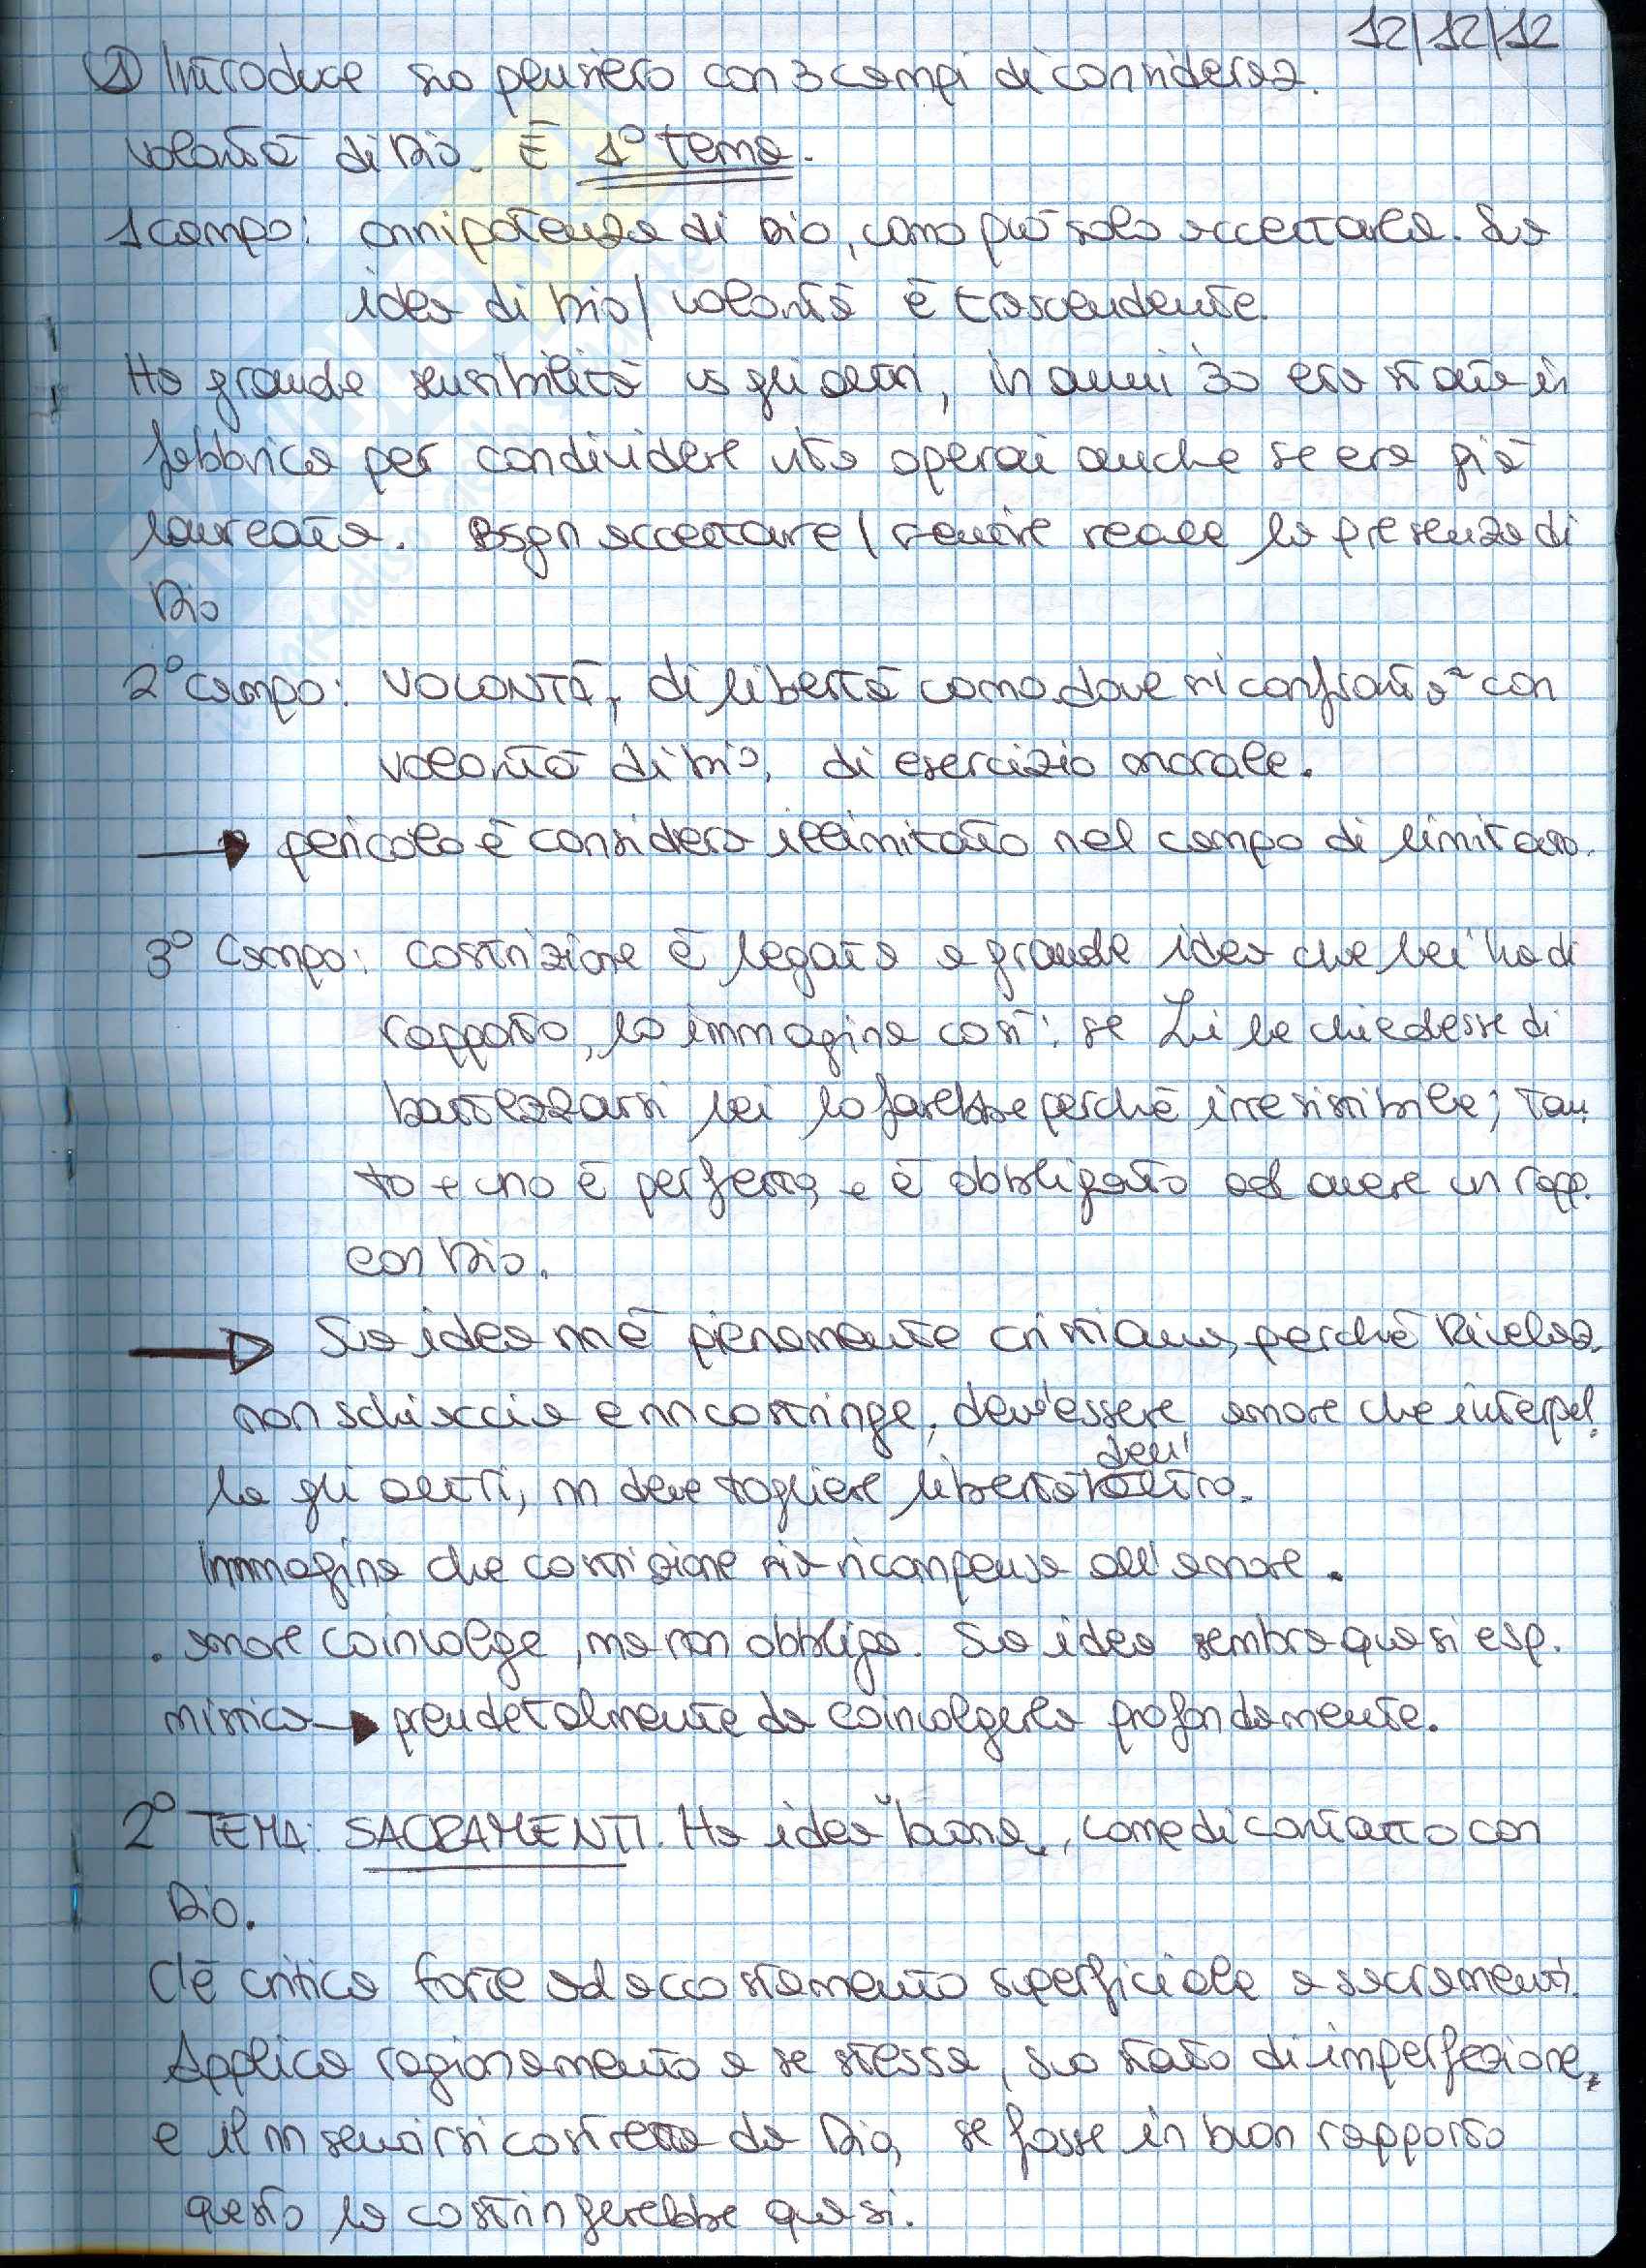 12/12/12
① Introduce suo pensiero con 3 campi di consideraz.
volontà di Dio. È 1° tema.
1 campo: onnipotenza di Dio, uomo può solo accettarla. Sua
idea di Dio/volontà è trascendente.
Ha grande sensibilità vs gli altri, in anni '30 era stata in
fabbrica per condividere vita operai anche se era già
laureata. Bsgn accettare/sentire reale la presenza di
Dio
2° campo: VOLONTÀ, di libertà uomo dove si confronta con
volontà di Dio, di esercizio morale.
→ pericolo è considera illimitato nel campo di limitato.
3° Campo: costrizione è legata a grande idea che lei ha di
rapporto, lo immagina così: se Lui le chiedesse di
battezzarsi lei lo farebbe perché irresistibile; tan
to + uno è perfetto, + è obbligato ad avere un rapp.
con Dio.
→ Sua idea nn è pienamente cristiana, perché Rivelaz.
non schiaccia e nn costringe, dev'essere amore che interpel
la gli altri, nn deve togliere libertà dell'altro.
Immagina che costrizione sia ricompensa all'amore.
. amore coinvolge, ma non obbliga. Sua idea sembra quasi esp.
mistica → prende talmente da coinvolgerla profondamente.
2° TEMA: SACRAMENTI. Ha idea buona, come di contatto con
Dio.
C'è critica forte ad accostamento superficiale a sacramenti.
Applica ragionamento a se stessa, suo stato di imperfezione,
e il nn sentirsi costretta da Dio, se fosse in buon rapporto
questo la costringerebbe quasi.